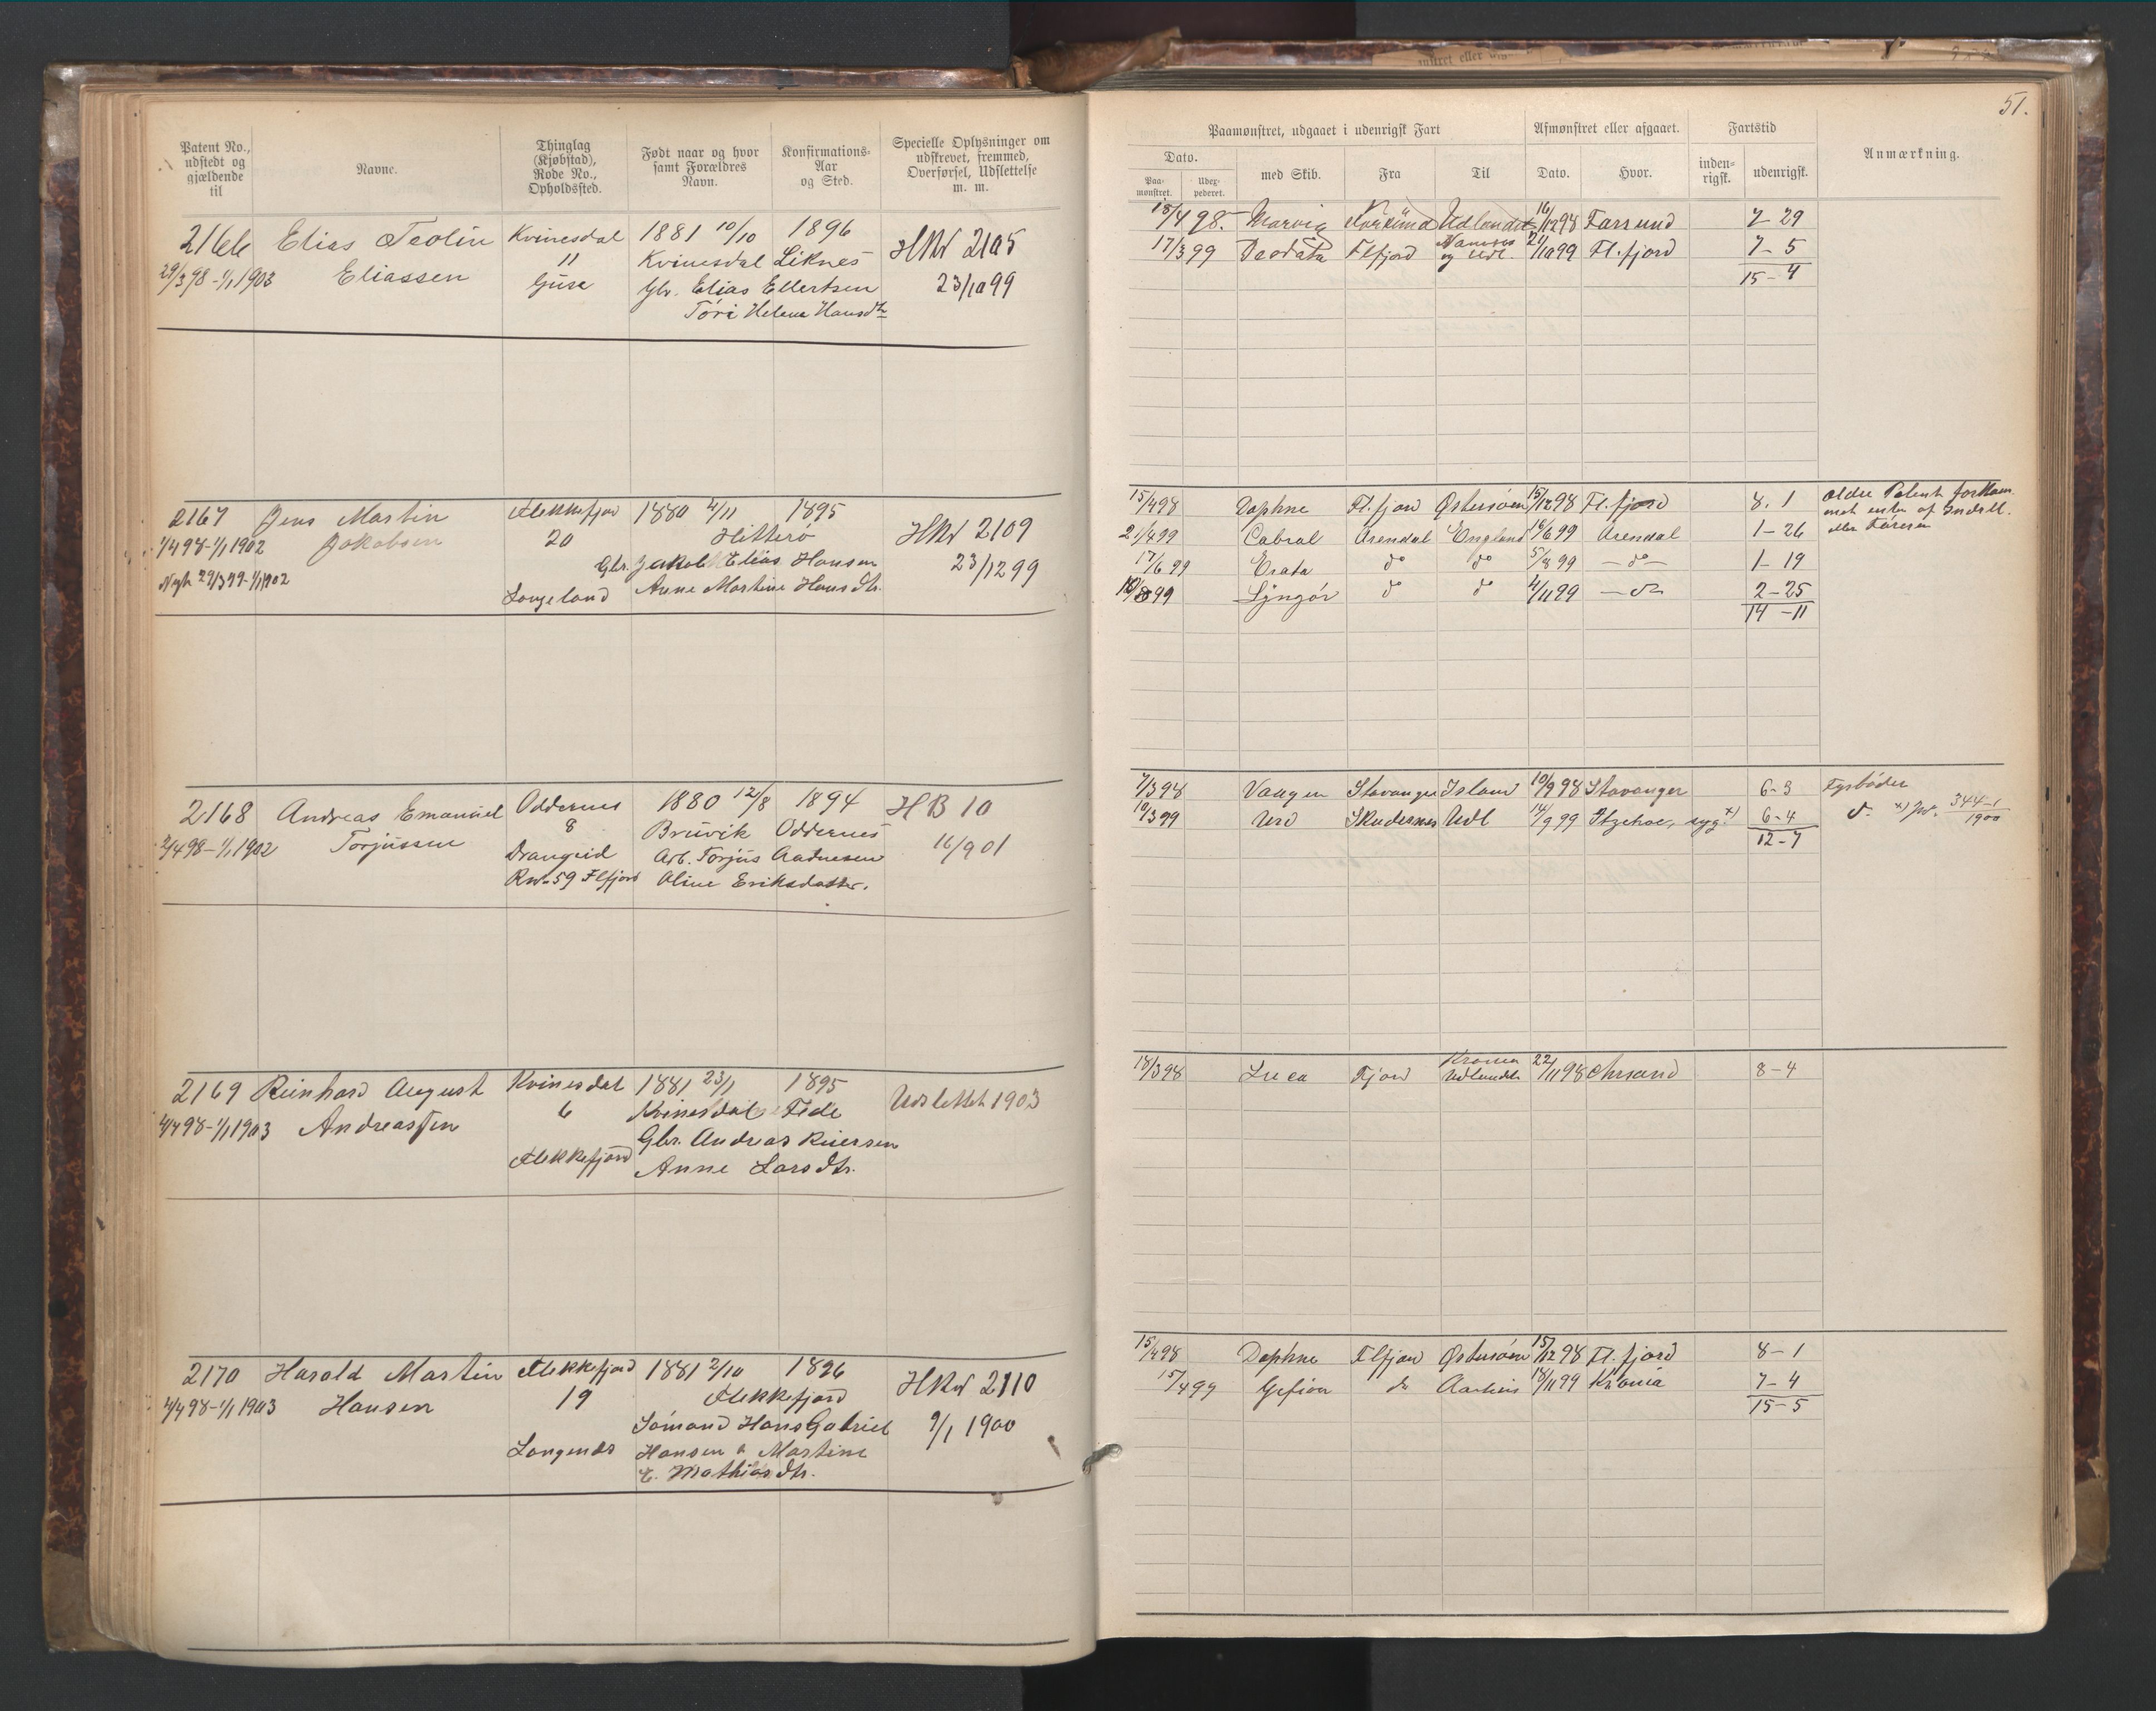 51.
Patent No., udstedt og gjældende til
Navne.
Thinglag (Kjøbstad), Rode No., Opholdssted.
Født naar og hvor samt Forældres Navn.
Konfirmations-Aar og Sted.
Specielle Oplysninger om udskrevet, fremmed, Overførsel, Udslettelse m. m.
Paamønstret, udgaaet i udenrigsk Fart
Afmønstret eller afgaaet.
Fartstid
Anmærkning.
Dato.
Paa-mønstret.
Udex-pederet.
med Skib.
Fra
Til
Dato.
Hvor.
inden-rigsk.
udenrigsk.
2166 Elias Teolin Kvinesdal 1881 10/10 1896 HKW 2105
29/3 98-1/1 1903 Eliassen 11 Kvinesdal Liknes 23/10 99
Gjusa Gbr. Elias Ellertsen
Tóri Helene Hansdtr
15/4 98. Marvig Udlandet 16/12 98 Farsund 7-29
17/3 99 Deodata Flfjord og Udl. 21/10 99 Fl.fjord 7-5
15-4
2167 Jens Martin Flekkefjord 1880 4/11 1895 HKW 2109
1/4 98-1/1 1902 Jakobsen 20 Hitterø 23/12 99
Nyt 29/3 99-1/1 1902 Gbr. Jakob Elias Hansen
Langeland Anne Martine Hansdtr.
15/4 98 Daphne Fl.fjord Østersøen 15/12 98 Fl.fjord 8.1 ældre Patent forkom
21/4 99 Cabral Arendal England 16/6 99 Arendal 1-26 eller
17/6 99 Erata do do 5/8 99 - do - 1-19
10/8 99 Lyngør do do 4/11 99 - do 2-25
14-11
2168 Andreas Emanuel Oddernes 1880 12/8 1894 HB 10
2/4 98-1/1 1902 Torjussen 8 Bruvik Oddernes 16/9 01
Drangeid Arb. Torjus Aadnesen
Rno 59 Flfjord Oline Eriksdatter.
7/3 98 Vaagen Stavanger Island 10/9 98 Stavanger 6-3 Fyrbøder
10/3 99 Urd Skudesnes Udl 14/9 99 Itzehoe, syg x) 6-4 do x) Jno. 344-1/1900
12-7
2169 Reinhard August Kvinesdal 1881 23/1 1895 Udslettet 1903
4/4 98-1/1 1903 Andreassen 6 Kvinesdal Fede
Gbr. Andreas Reiersen
Flekkefjord Anne Larsdtr.
18/3 98 Luca Fjord Udlandet 22/11 98 Chrsand 8-4
2170 Harald Martin Flekkefjord 1881 2/10 1896 HKW 2110
4/4 98-1/1 1903 Hansen 19 Flekkefjord 9/1 1900
Sømand Hans Gabriel
Langenes Hansen & Martine
E. Mathiasdtr.
15/4 98 Daphne Flfjord Østersøen 15/12 98 Fl.fjord 8-1
15/4 99 Gefion do Aarhus 18/11 99 Krania 7-4
15-5